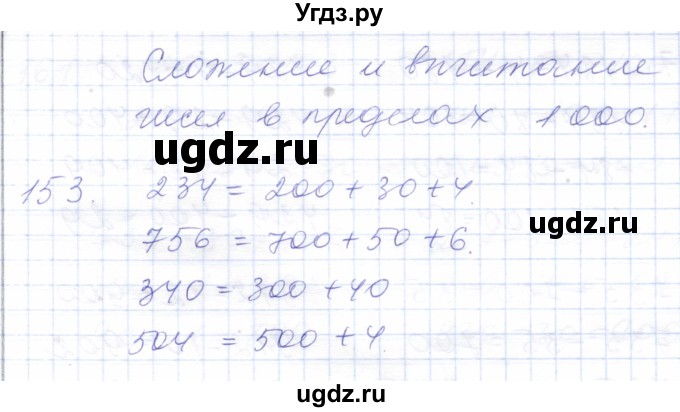 Угдз.ру
Сложение и вычитание
чисел в пределах 1000.
ugdz.ru
153. 234 = 200 + 30 + 4.
ugdz.ru
756 = 700 + 50 + 6.
340 = 300 + 40
504 = 500 + 4.
ugdz.ru
ugdz.ru